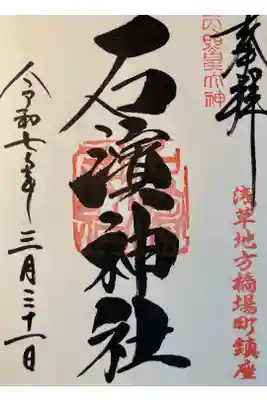 奉拝
天照皇大神
淺草地方橋場町鎮座
石濱神社
令和七年三月三十一日